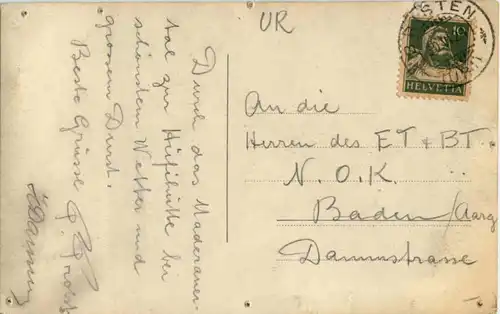 UR
Durch das Maderaner-
tal zur Hüfihütte bei
schönstem Wetter und
grossem Durst.
Beste Grüsse
STEN
10
HELVETIA
An die
Herren des ET & BT
N.O.K.
Baden/Aarg
Dammstrasse